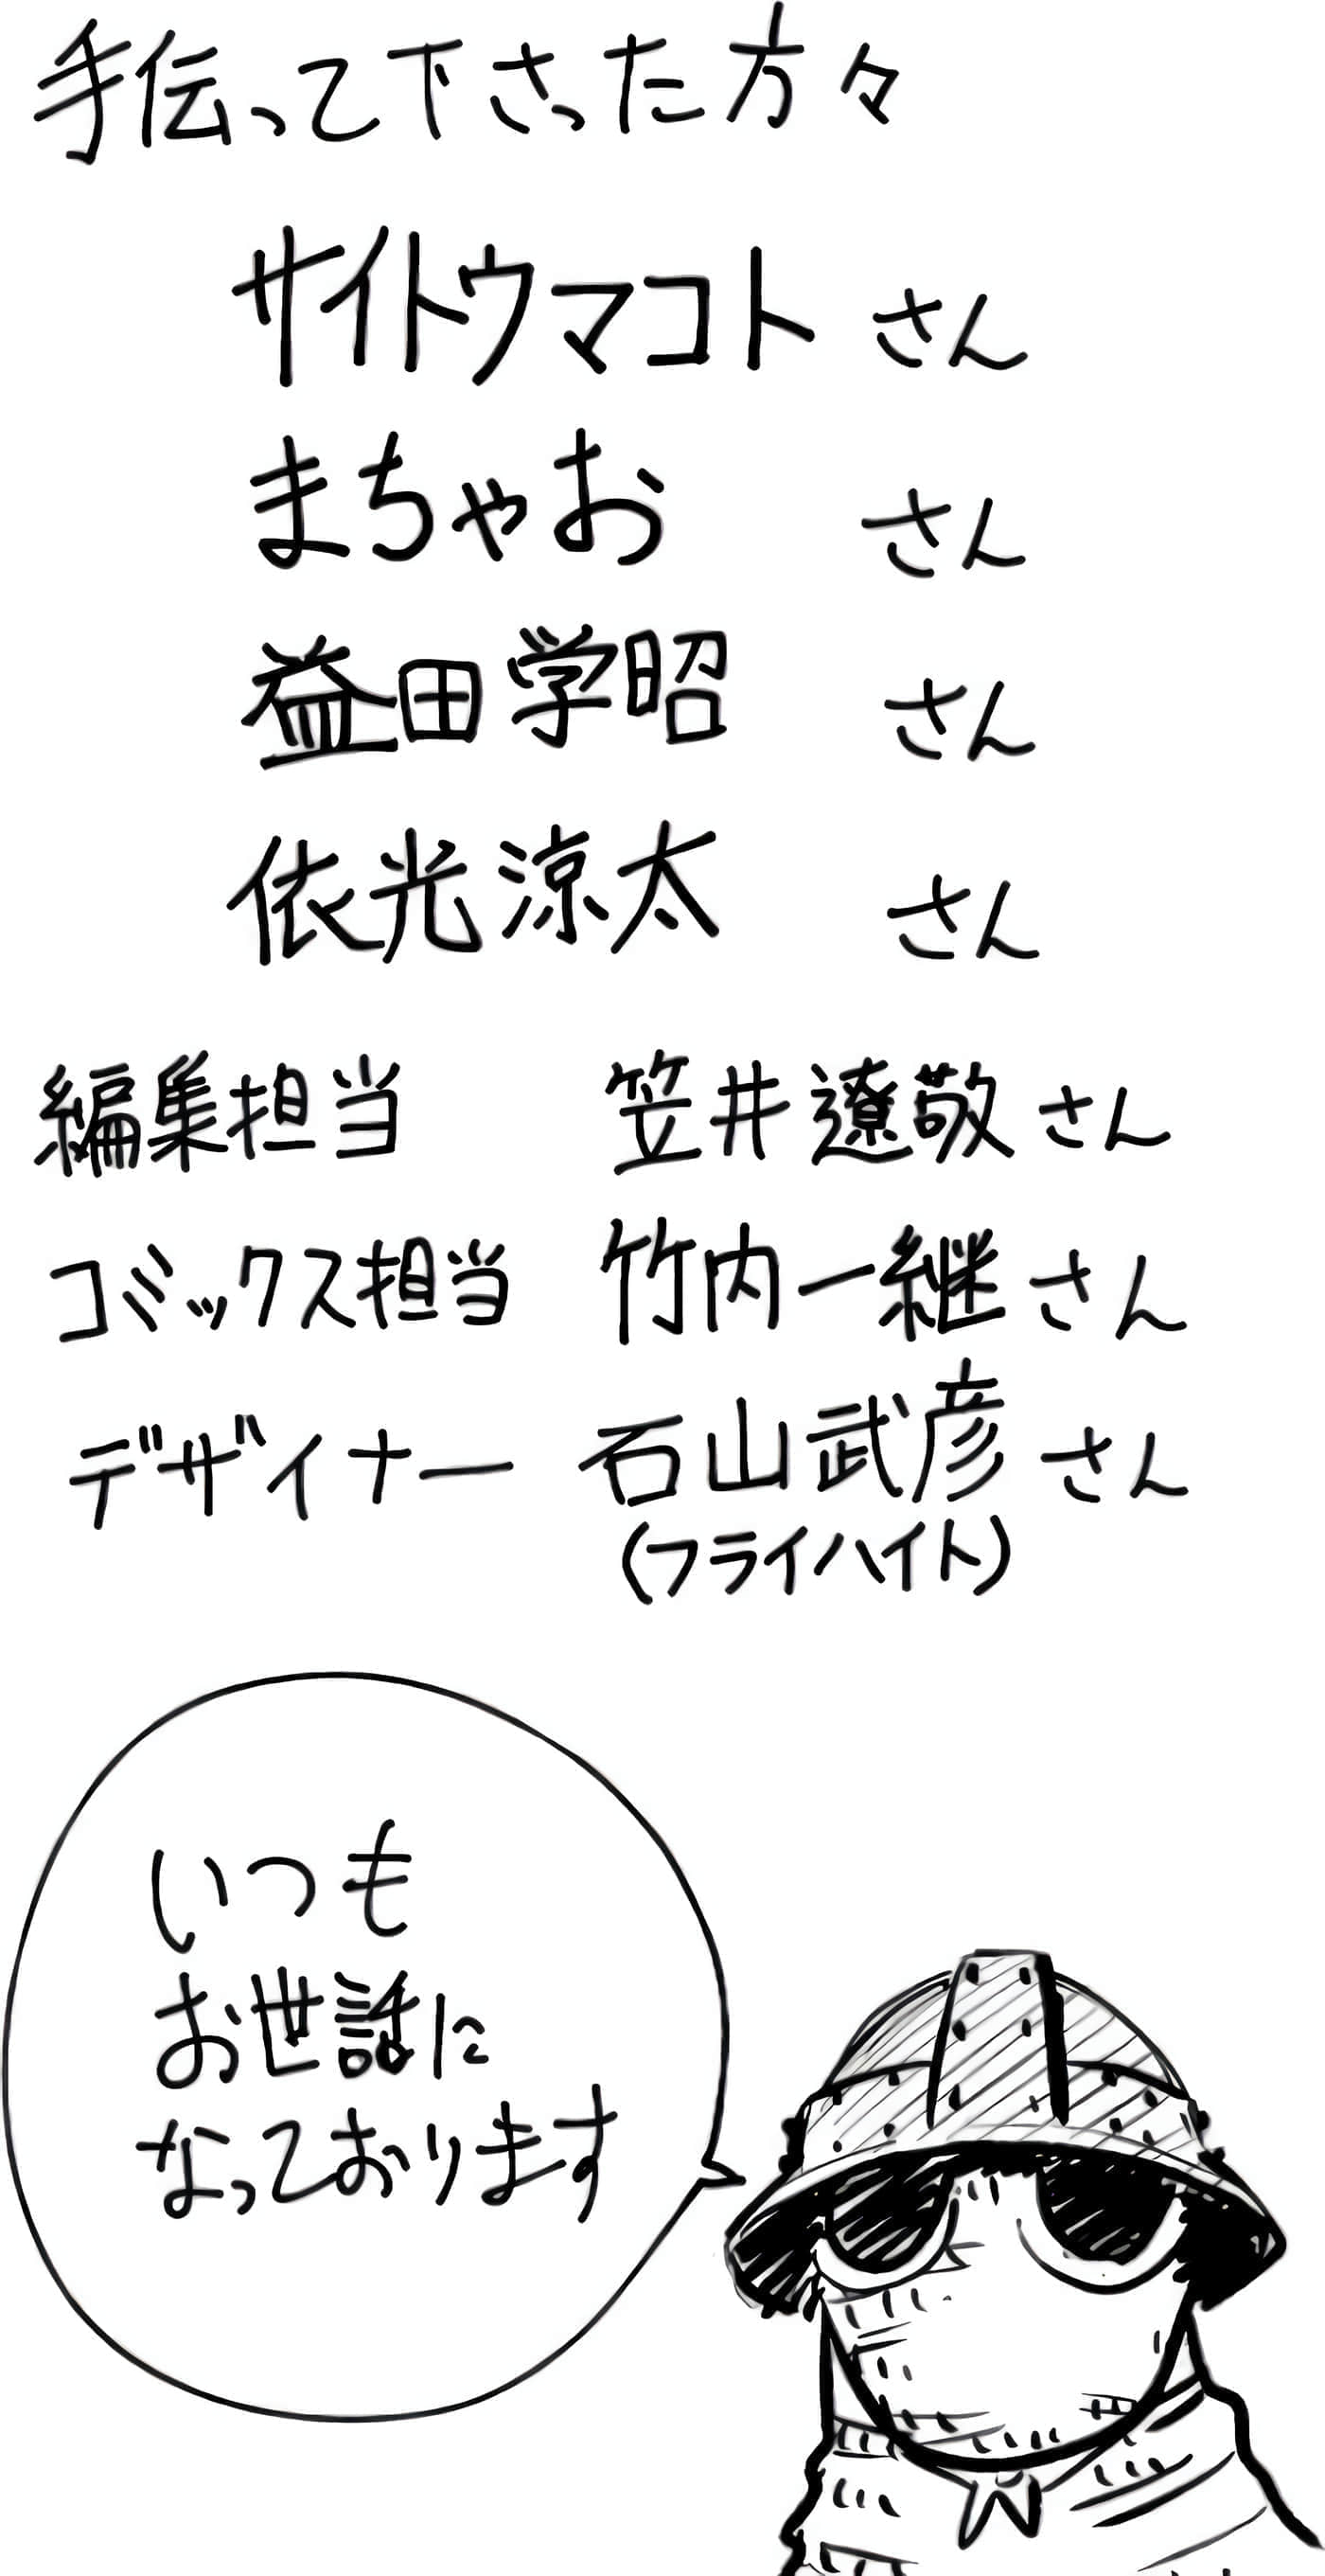 手伝って下さった方々
サイトウマコト さん
まちゃお さん
益田学昭 さん
依光涼太 さん
編集担当 笠井遼敬さん
コミックス担当 竹内一継さん
デザイナー 石山武彦さん
(フライハイト)
いつも
お世話に
なっております